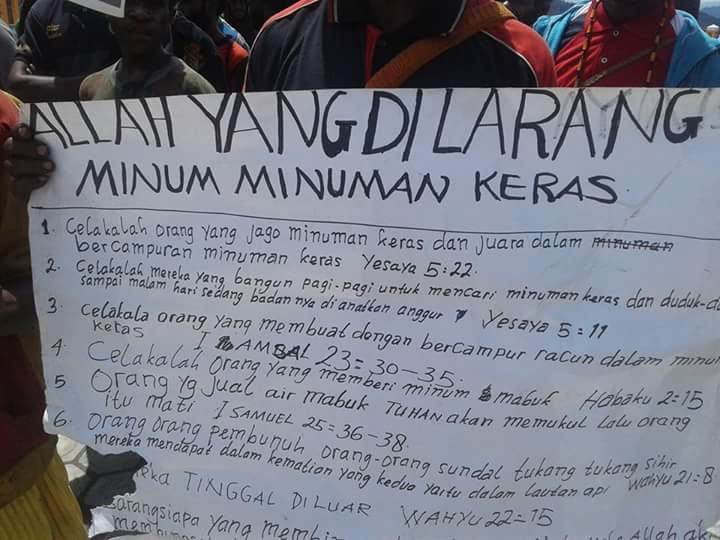 ALLAH YANG DILARANG
MINUM MINUMAN KERAS.
1. Celakalah orang yang jago minuman keras dan juara dalam minuman
bercampuran minuman keras Yesaya 5:22.
2. Celakalah mereka yang bangun pagi-pagi untuk mencari minuman keras dan duduk-d
sampai malam hari sedang badan nya di anatkan anggur Yesaya 5=11
3. Celakala orang yang membuat dongan bercampur racun dalam minu
keras I AMSAL 23=30-35.
4. Celakalah orang yang memberi minum mabuk Habaku 2=15
5 Orang yg jual air mabuk TUHAN akan memukul lalu orang
itu mati I SAMUEL 25=36-38.
6. Orang orang pembunuh orang-orang sundal tukang tukang sihir
mereka mendapat dalam kematian yang kedua yaitu dalam lautan api Wahyu 21=8
eka TINGGAL DI LUAR WAHYU 22=15
arangsiapa yang